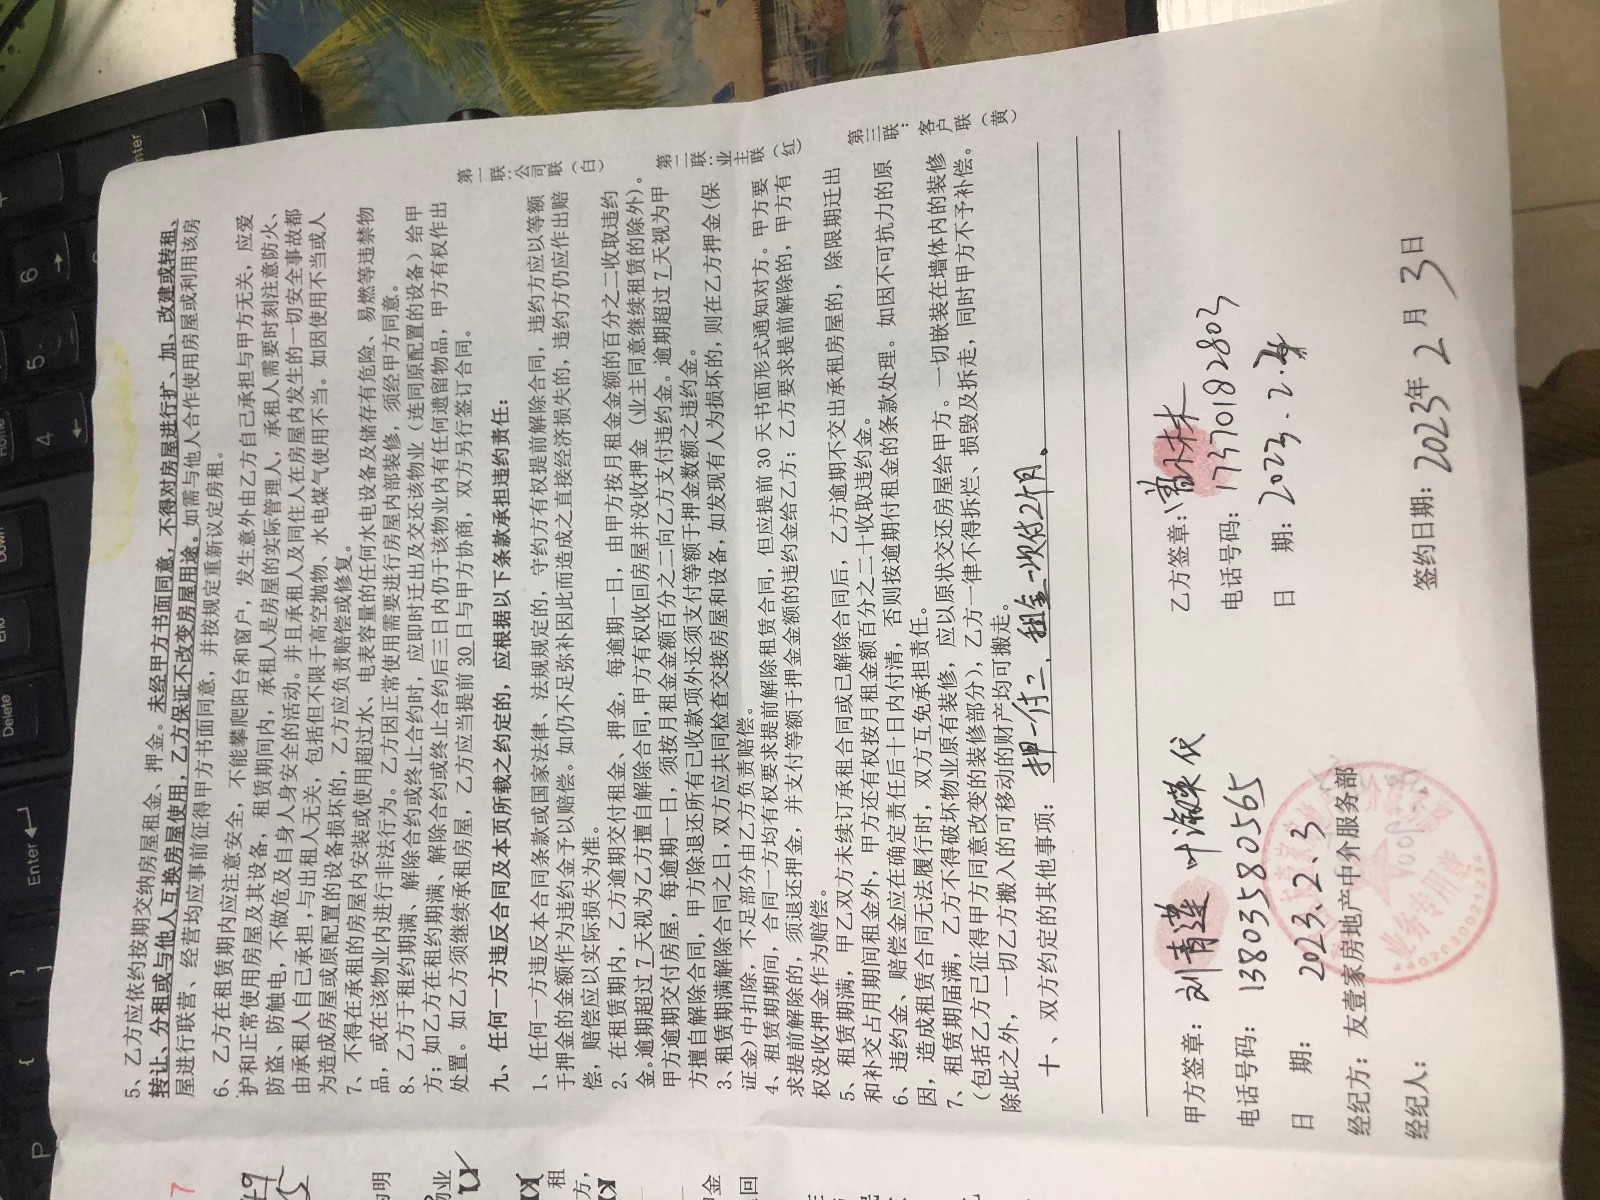 5、乙方应依约按期交纳房屋租金、押金。未经甲方书面同意，不得对房屋进行扩、加、改建或转租、
转让、分租或与他人互换房屋使用，乙方保证不改变房屋用途。如需与他人合作使用房屋或利用该房
屋进行联营、经营均应事前征得甲方书面同意，并按规定重新议定房租。
6、乙方在租赁期内应注意安全，不能攀爬阳台和窗户，发生意外由乙方自己承担与甲方无关，应爱
护和正常使用房屋及其设备，租赁期间内，承租人是房屋的实际管理人，承租人需要时刻注意防火、
防盗、防触电，不做危及自身人身安全的活动。并且承租人及同住人在房屋内发生的一切安全事故都
由承租人自己承担，与出租人无关，包括但不限于高空抛物、水电煤气使用不当。如因使用不当或人
为造成房屋或原配置的设备损坏的，乙方应负责赔偿或修复。
7、不得在承租的房屋内安装或使用超过水、电表容量的任何水电设备及储存有危险、易燃等违禁物
品，或在该物业内进行非法行为。乙方因正常使用需要进行房屋内部装修，须经甲方同意。
8、乙方于租约期满、解除合约或终止合约时，应即时迁出及交还该物业（连同原配置的设备）给甲
方；如乙方在租约期满、解除合约或终止合约后三日内仍于该物业内有任何遗留物品，甲方有权作出
处置。如乙方须继续承租房屋，乙方应当提前 30 日与甲方协商，双方另行签订合同。
九、任何一方违反合同及本页所载之约定的，应根据以下条款承担违约责任：
1、任何一方违反本合同条款或国家法律、法规规定的，守约方有权提前解除合同，违约方应以等额
于押金的金额作为违约金予以赔偿。如仍不足弥补因此而造成之直接经济损失的，违约方仍应作出赔
偿，赔偿应以实际损失为准。
2、在租赁期内，乙方逾期交付租金、押金，每逾期一日，由甲方按月租金金额的百分之二收取违约
金。逾期超过 7 天视为乙方擅自解除合同，甲方有权收回房屋并没收押金（业主同意继续租赁的除外）。
甲方逾期交付房屋，每逾期一日，须按月租金金额百分之二向乙方支付违约金。逾期超过 7 天视为甲
方擅自解除合同，甲方除退还所有已收款项外还须支付等额于押金数额之违约金。
3、租赁期满解除合同之日，双方应共同检查交接房屋和设备，如发现有人为损坏的，则在乙方押金（保
证金）中扣除，不足部分由乙方负责赔偿。
4、租赁期期间，合同一方均有权要求提前解除租赁合同，但应提前 30 天书面形式通知对方。甲方要
求提前解除的，须退还押金，并支付等额于押金金额的违约金给乙方；乙方要求提前解除的，甲方有
权没收押金作为赔偿。
5、租赁期满，甲乙双方未续订承租合同或已解除合同后，乙方逾期不交出承租房屋的，除限期迁出
和补交占用期间租金外，甲方还有权按月租金额百分之二十收取违约金。
6、违约金、赔偿金应在确定责任后十日内付清，否则按逾期付租金的条款处理。如因不可抗力的原
因，造成租赁合同无法履行时，双方互免承担责任。
7、租赁期届满，乙方不得破坏物业原有装修，应以原状交还房屋给甲方。一切嵌装在墙体内的装修
（包括乙方已征得甲方同意改变的装修部分），乙方一律不得拆烂、损毁及拆走，同时甲方不予补偿。
除此之外，一切乙方搬入的可移动的财产均可搬走。
十、双方约定的其他事项：押一付二，租金一次付2个月。
第一联：公司联（白）
第二联：业主联（红）
第三联：客户联（黄）
甲方签章：刘青莲 叶淑英代
电话号码：13803580565
日 期：2023.2.3
经纪方：友壹家房地产中介服务部
经纪人：
业务专用章
4402030021234
乙方签章：曹林林
电话号码：17370182803
日 期：2023.2.
签约日期：2023年 2 月 3 日